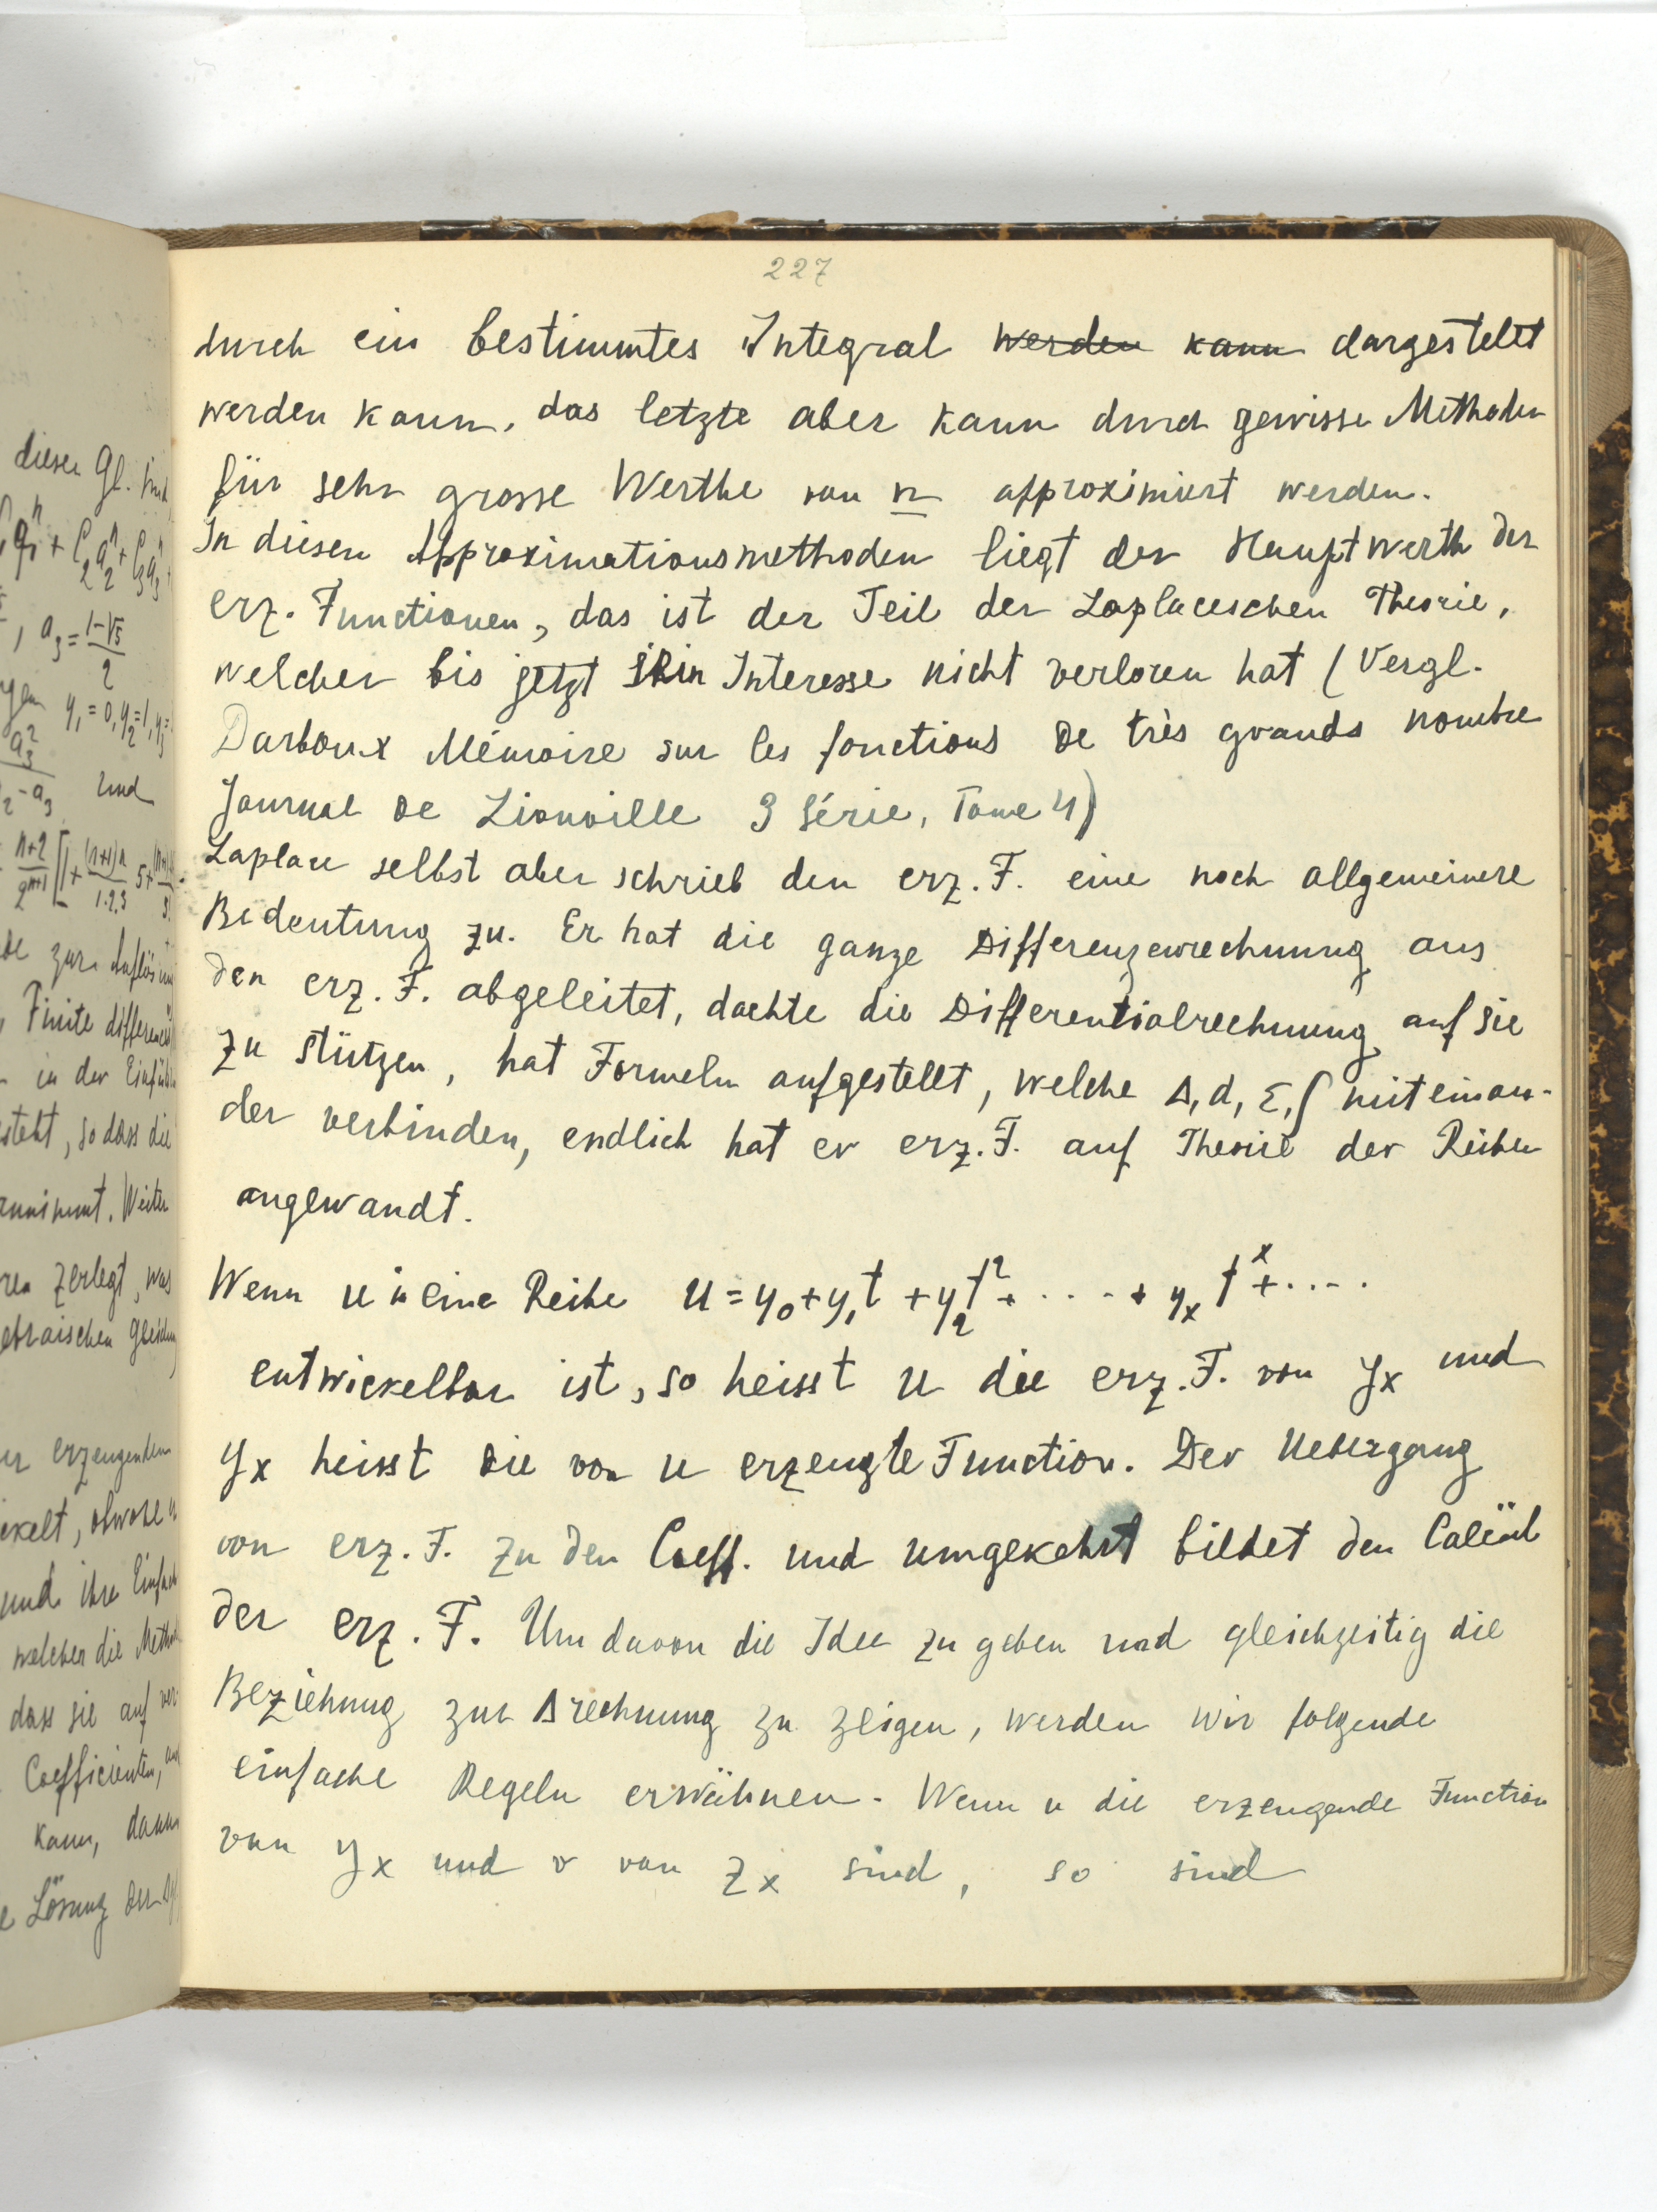 227
durch ein bestimmtes Integral werden kann dargestellt
werden kann, das letzte aber kann durch gewisse Methoden
für sehr grosse Werthe von n approximiert werden.
In diesen Approximationsmethoden liegt der Hauptwerth der
erz. Functionen, das ist der Teil der Laplaceschen Theorie,
welcher bis jetzt sein Interesse nicht verloren hat (Vergl.
Darboux Mémoire sur les fonctions de très grands nombre
Journal de Liouville 3 Série, Tome 4)
Laplace selbst aber schrieb den erz. F. eine noch allgemeinere
Bedeutung zu. Er hat die ganze Differenzenrechnung aus
den erz. F. abgeleitet, dachte die Differentialrechnung auf sie
zu stützen, hat Formeln aufgestellt, welche Δ, d, Σ, ∫ miteinan-
der verbinden, endlich hat er erz. F. auf Theorie der Reihen
angewandt.
Wenn u in eine Reihe u = y₀ + y₁t + y₂t² + ···· + yₓ tˣ + ····
entwickelbar ist, so heisst u die erz. F. von yₓ und
yₓ heisst die von u erzeugte Function. Der Uebergang
von erz. F. zu den Coeff. und umgekehrt bildet den Calcül
der erz. F. Um davon die Idee zu geben und gleichzeitig die
Beziehung zur Δrechnung zu zeigen, werden wir folgende
einfache Regeln erwähnen. Wenn u die erzeugende Function
von yₓ und v von zₓ sind, so sind
dieser Gl. sind
a₃ = (1-√5)/2
y₁ = 0, y₂ = 1, y₃ =
und
zur Auflösung
Finite differences
in der Einfüh
steht, so dass die
Weiter
zerlegt, was
erzeugenden
ckelt, obwohl
und ihre Einfach
welcher die Meth
dass sie auf ver
Coefficienten,
kann, dann
Lösung der